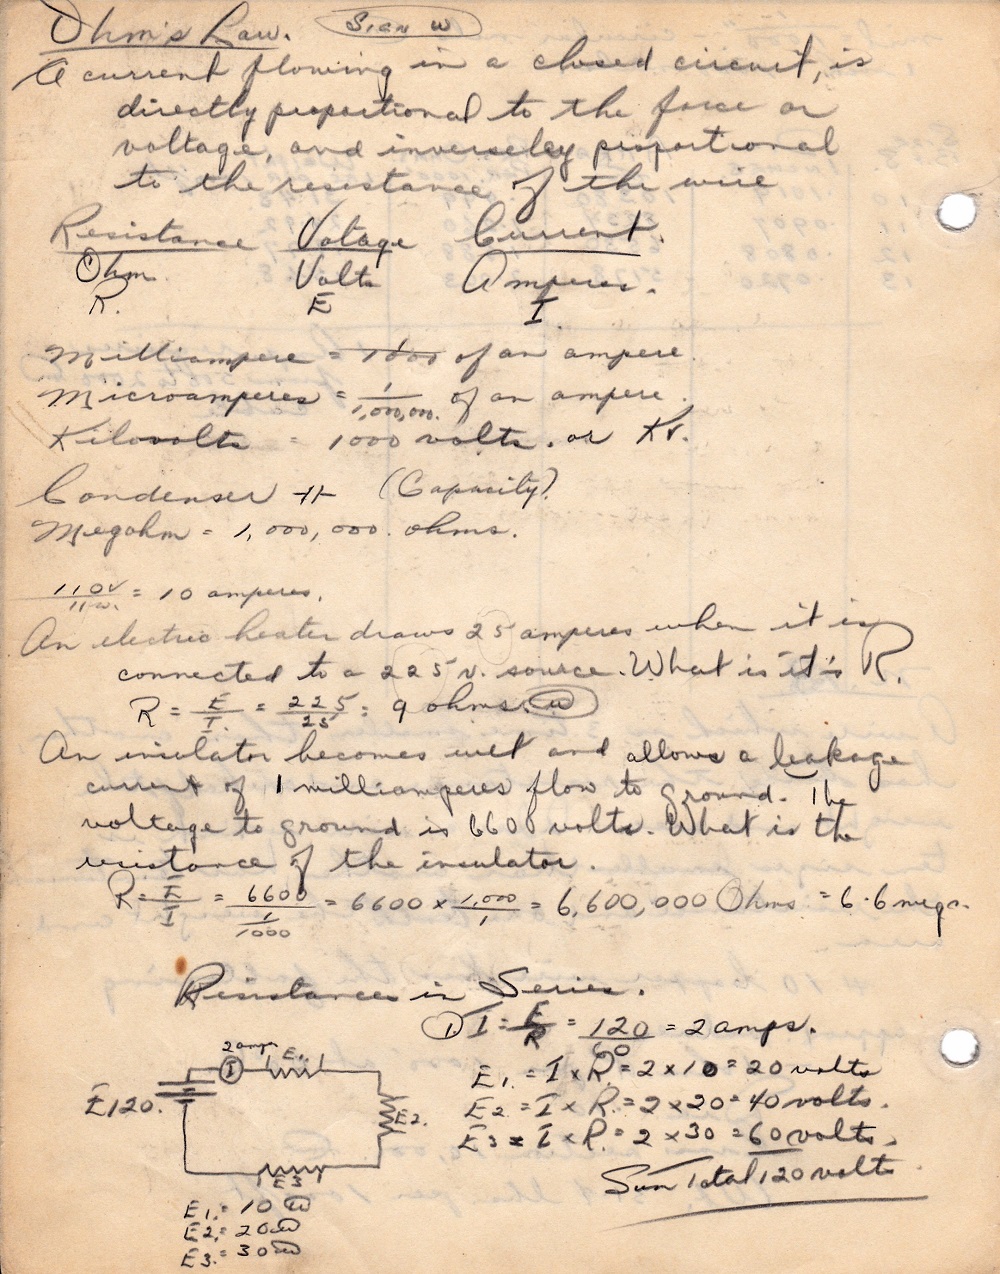 Ohm's Law. Sign ω
A current flowing in a closed circuit, is
directly proportional to the force or
voltage, and inverseley proportional
to the resistance of the wire
Resistance Votage Current.
Ohm. Volts Amperes.
R. E I.
Milliampere = 1/1000 of an ampere.
Microamperes = 1/1,000,000. of an ampere.
Kilovolts = 1000 volts. or Kv.
Condenser ⊣⊢ (Capacity).
Megohm = 1,000,000. ohms.
110v/11ω. = 10 amperes.
An electric heater draws 25 amperes when it is
connected to a 225 v. source. What is it's R.
R = E/I. = 225/25 = 9 ohms. ω
An insulator becomes wet and allows a leakage
current of 1 milliamperes flow to ground. The
voltage to ground is 6600 volts. What is the
resistance of the insulator.
R = E/I = 6600/(1/1000) = 6600 x 1,000/1 = 6,600,000 Ohms = 6.6 mego.
Resistances in Series.
1. I = E/R = 120/60 = 2 amps.
E1. = I x R = 2 x 10 = 20 volts
E2 = I x R. = 2 x 20 = 40 volts.
E3 = I x R. = 2 x 30 = 60 volts.
Sum Total 120 volts
2 amps
I
E1.
E120.
E2.
E3
E1. = 10 ω
E2. = 20 ω
E3. = 30 ω